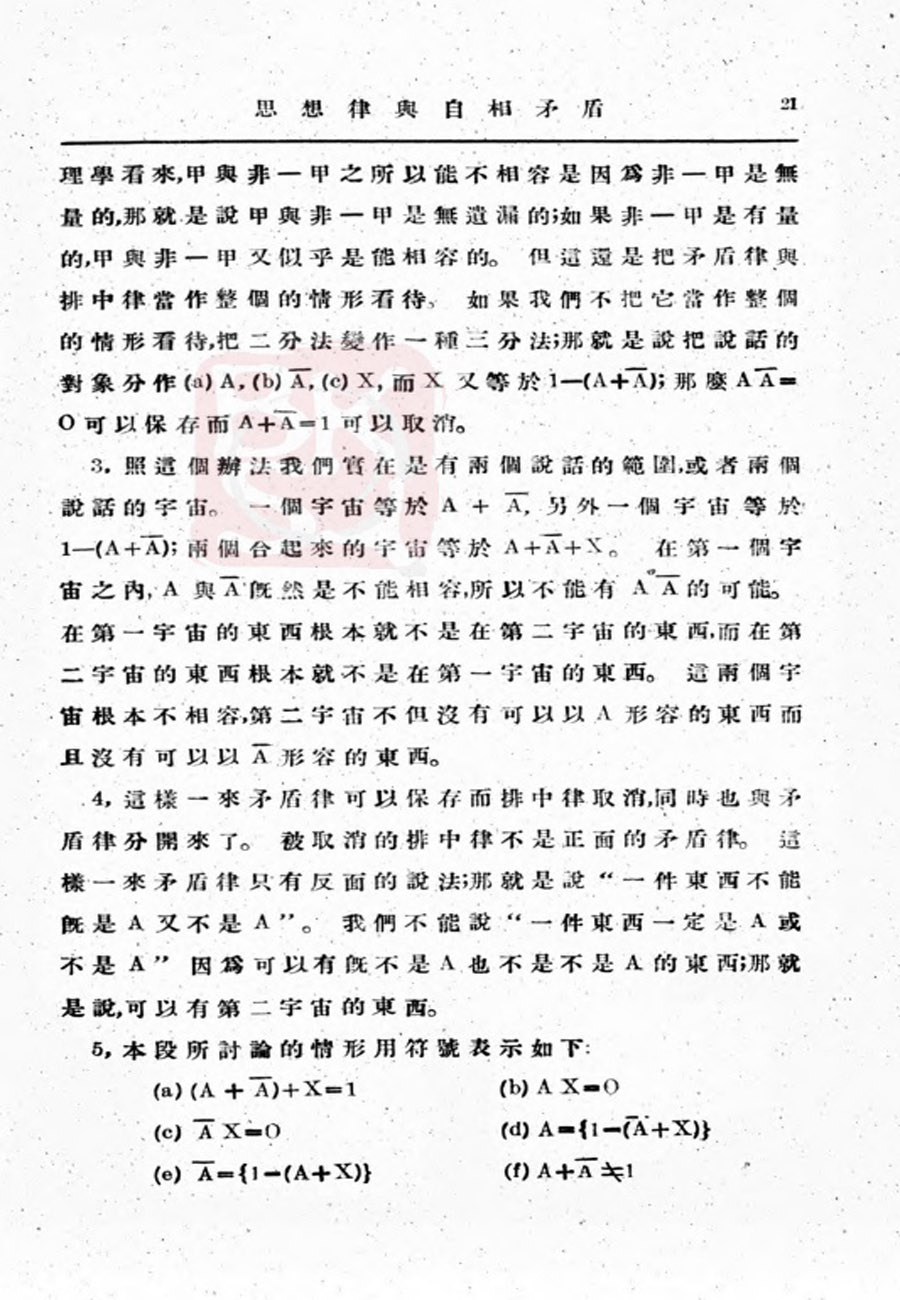 思想律與自相矛盾 21
理學看來,甲與非一甲之所以能不相容是因爲非一甲是無
量的,那就是說甲與非一甲是無遺漏的;如果非一甲是有量
的,甲與非一甲又似乎是能相容的。 但這還是把矛盾律與
排中律當作整個的情形看待。 如果我們不把它當作整個
的情形看待,把二分法變作一種三分法;那就是說把說話的
對象分作 (a) A, (b) A̅, (c) X, 而 X 又等於 1—(A+A̅); 那麼 A A̅=
O 可以保存而 A+A̅=1 可以取消。
3. 照這個辦法我們實在是有兩個說話的範圍,或者兩個
說話的宇宙。 一個宇宙等於 A + A̅, 另外一個宇宙等於
1—(A+A̅); 兩個合起來的宇宙等於 A+A̅+X。 在第一個宇
宙之內, A 與 A̅ 旣然是不能相容,所以不能有 A A̅ 的可能。
在第一宇宙的東西根本就不是在第二宇宙的東西,而在第
二宇宙的東西根本就不是在第一宇宙的東西。 這兩個宇
宙根本不相容,第二宇宙不但沒有可以以 A 形容的東西而
且沒有可以以 A̅ 形容的東西。
4, 這樣一來矛盾律可以保存而排中律取消,同時也與矛
盾律分開來了。 被取消的排中律不是正面的矛盾律。 這
樣一來矛盾律只有反面的說法;那就是說 “一件東西不能
旣是 A 又不是 A”。 我們不能說 “一件東西一定是 A 或
不是 A” 因爲可以有旣不是 A 也不是不是 A 的東西;那就
是說,可以有第二宇宙的東西。
5, 本段所討論的情形用符號表示如下:
(a) (A + A̅)+X=1 (b) A X=O
(c) A̅ X=O (d) A={1—(A̅+X)}
(e) A̅={1—(A+X)} (f) A+A̅≠1